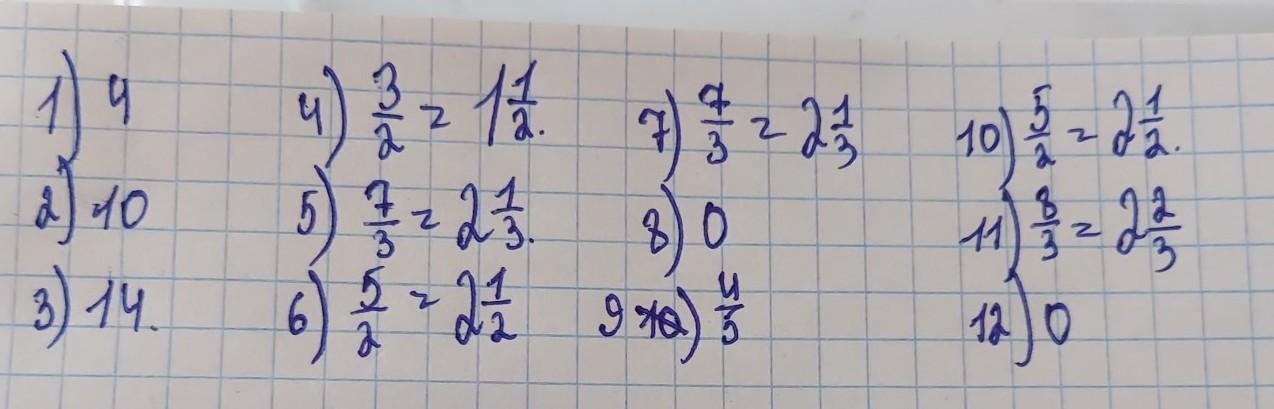 1) 4
2) 10
3) 14.
4) 3/2 = 1 1/2.
5) 7/3 = 2 1/3.
6) 5/2 = 2 1/2
7) 7/3 = 2 1/3
8) 0
9) 4/5
10) 5/2 = 2 1/2.
11) 8/3 = 2 2/3
12) 0